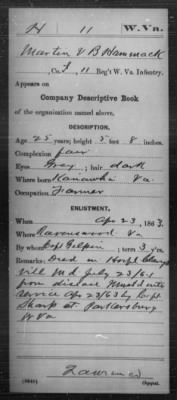 H 11 W. Va.
Martin V B Hammack
Co. I, 11 Reg't W. Va. Infantry.
Appears on
Company Descriptive Book
of the organization named above.
DESCRIPTION.
Age 25 years; height 5 feet 8 inches.
Complexion fair
Eyes Gray; hair dark
Where born Kanawha Va
Occupation Farmer
ENLISTMENT.
When Apr 23, 1863
Where Ravenswood Va
By whom Cap Gilpin; term 3 y'rs.
Remarks: Died in Hosp'l
vill Md July 23/64
from disease Must'd into
service Apr 23/63 by Capt
at Parkersburg
W Va
Copyist.